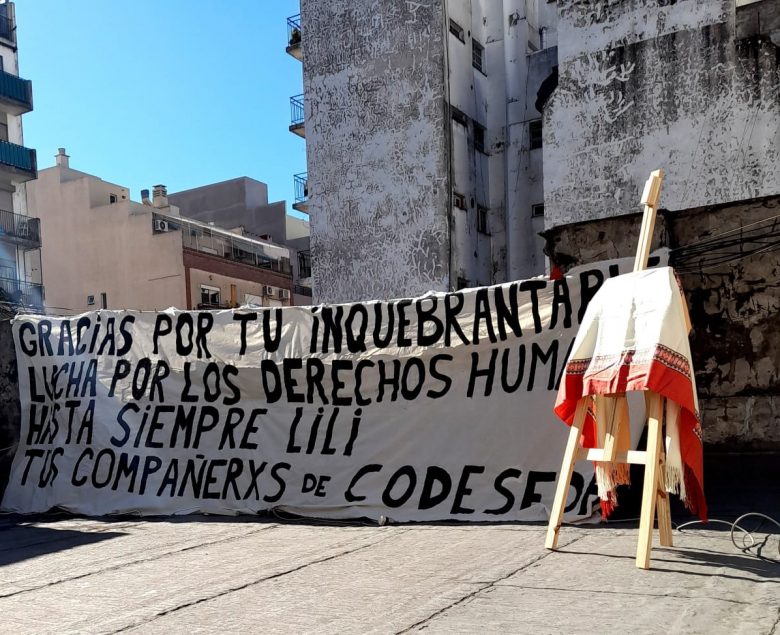 GRACIAS POR TU iNQUEBRANTAB
LUCHA POR LOS DERECHOS HUMA
HASTA SiEMPRE LiLi
TUS COMPAÑERXS DE CODESEDH